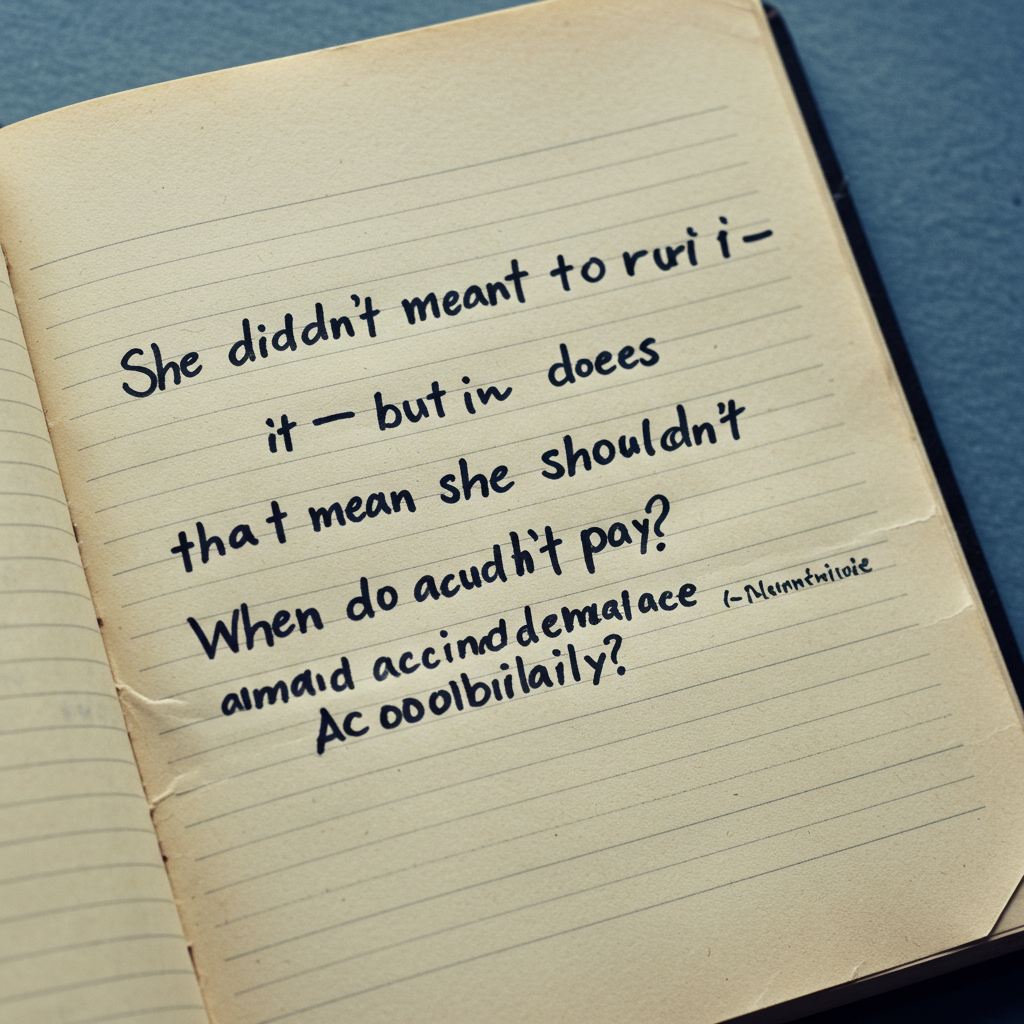 She diddn't meant to ruri i –
it – but in doees
that mean she shouldn't
When do acudh't pay?
almaid accind demalace
Ac ooolbiilaily?